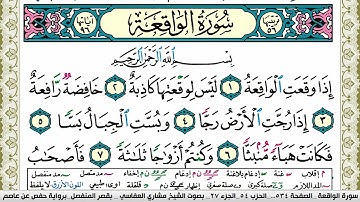 سُورَةُ الوَاقِعَةِ
بِسْمِ اللَّهِ الرَّحْمَٰنِ الرَّحِيمِ
إِذَا وَقَعَتِ ٱلْوَاقِعَةُ ١ لَيْسَ لِوَقْعَتِهَا كَاذِبَةٌ ٢ خَافِضَةٌ رَّافِعَةٌ
٣ إِذَا رُجَّتِ ٱلْأَرْضُ رَجًّا ٤ وَبُسَّتِ ٱلْجِبَالُ بَسًّا ٥
فَكَانَتْ هَبَآءً مُّنۢبَثًّا ٦ وَكُنتُمْ أَزْوَٰجًا ثَلَـٰثَةً ٧ فَأَصْحَـٰبُ
سورة الواقعة _ الصفحة ٥٣٤ _ الحزب ٥٤ _ الجزء ٢٧ _ بصوت الشيخ مشاري العفاسي _ بقصر المنفصل _ برواية حفص عن عاصم